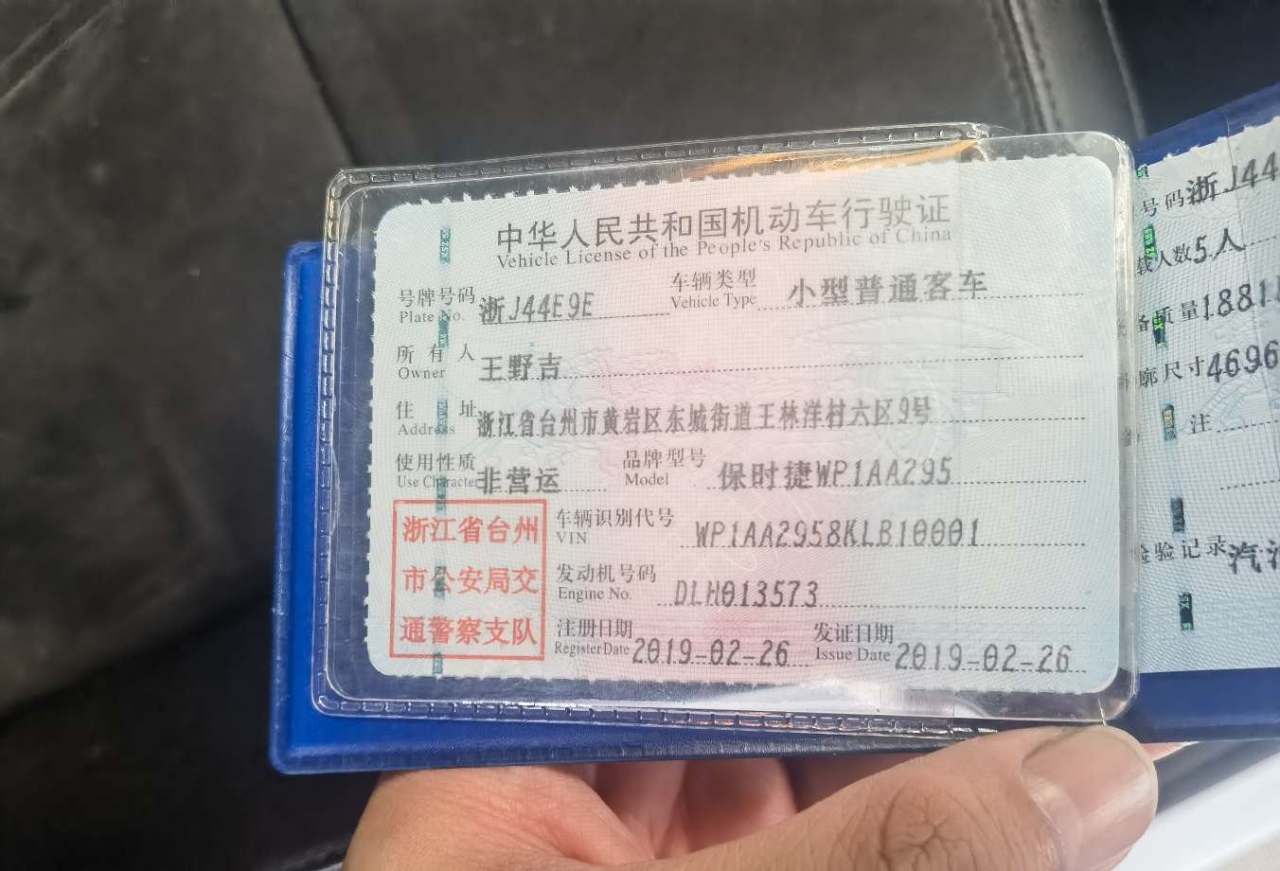 中华人民共和国机动车行驶证
Vehicle License of the People's Republic of China
号牌号码 浙J44E9E 车辆类型 小型普通客车
Plate No. Vehicle Type
所有人 王野吉
Owner
住址 浙江省台州市黄岩区东城街道王林洋村六区9号
Address
使用性质 非营运 品牌型号 保时捷WP1AA295
Use Character Model
浙江省台州
市公安局交
通警察支队
车辆识别代号 WP1AA2958KLB10001
VIN
发动机号码 DLH013573
Engine No.
注册日期 2019-02-26 发证日期 2019-02-26
Register Date Issue Date
号码 浙J44
载人数 5人
备质量 1881
廓尺寸 4696
注
检验记录 汽